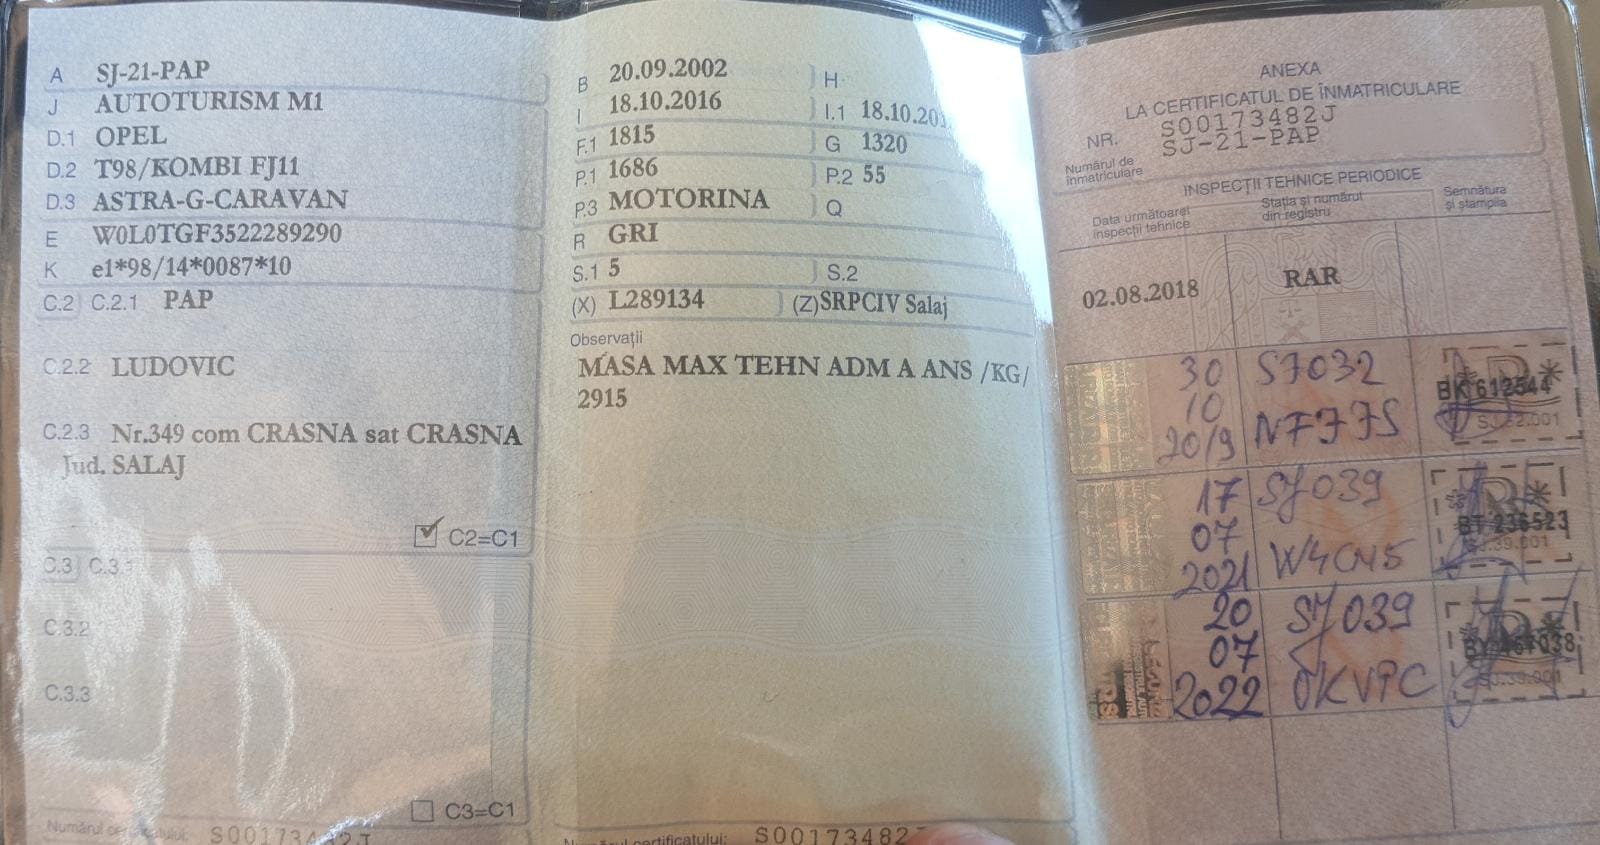 A SJ-21-PAP
J AUTOTURISM M1
D.1 OPEL
D.2 T98/KOMBI FJ11
D.3 ASTRA-G-CARAVAN
E W0L0TGF3522289290
K e1*98/14*0087*10
C.2 C.2.1 PAP
C.2.2 LUDOVIC
C.2.3 Nr.349 com CRASNA sat CRASNA
Jud. SALAJ
C2=C1
C.3 C.3.1
C.3.2
C.3.3
C3=C1
Numărul certificatului: S00173482J
B 20.09.2002 H
I 18.10.2016 I.1 18.10.20
F.1 1815 G 1320
P.1 1686 P.2 55
P.3 MOTORINA Q
R GRI
S.1 5 S.2
(X) L289134 (Z) SRPCIV Salaj
Observații
MASA MAX TEHN ADM A ANS /KG/
2915
Numărul certificatului: S00173482
ANEXA
LA CERTIFICATUL DE ÎNMATRICULARE
NR. S00173482J
Numărul de înmatriculare SJ-21-PAP
INSPECȚII TEHNICE PERIODICE
Data următoarei inspecții tehnice
Stația și numărul din registru
Semnătura și ștampila
02.08.2018 RAR
30 SJ032
10
2019 NF77S
BK 612544
17 SJ039
07
2021 W4CN5
BT 236523
SJ.39.001
20 SJ039
07
2022 0KVPC
BY 467038
SJ.39.001